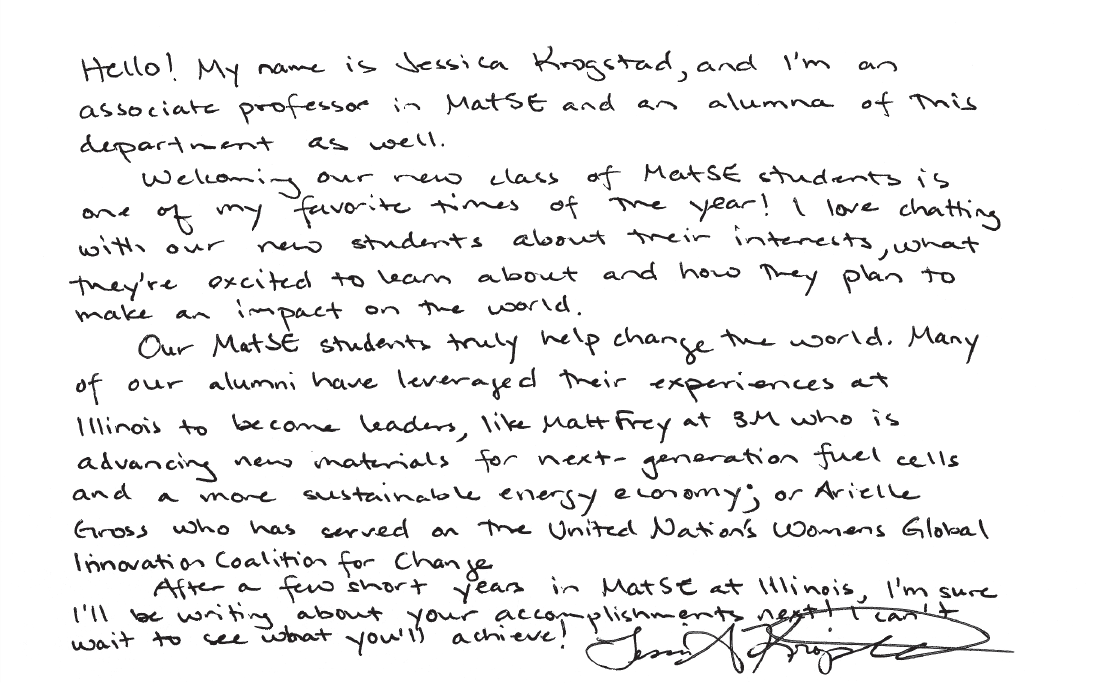 Hello! My name is Jessica Krogstad, and I'm an
associate professor in MatSE and an alumna of this
department as well.
Welcoming our new class of MatSE students is
one of my favorite times of the year! I love chatting
with our new students about their interests, what
they're excited to learn about and how they plan to
make an impact on the world.
Our MatSE students truly help change the world. Many
of our alumni have leveraged their experiences at
Illinois to become leaders, like Matt Frey at 3M who is
advancing new materials for next-generation fuel cells
and a more sustainable energy economy; or Arielle
Gross who has served on the United Nation's Womens Global
Innovation Coalition for Change
After a few short years in MatSE at Illinois, I'm sure
I'll be writing about your accomplishments next! I can't
wait to see what you'll achieve!